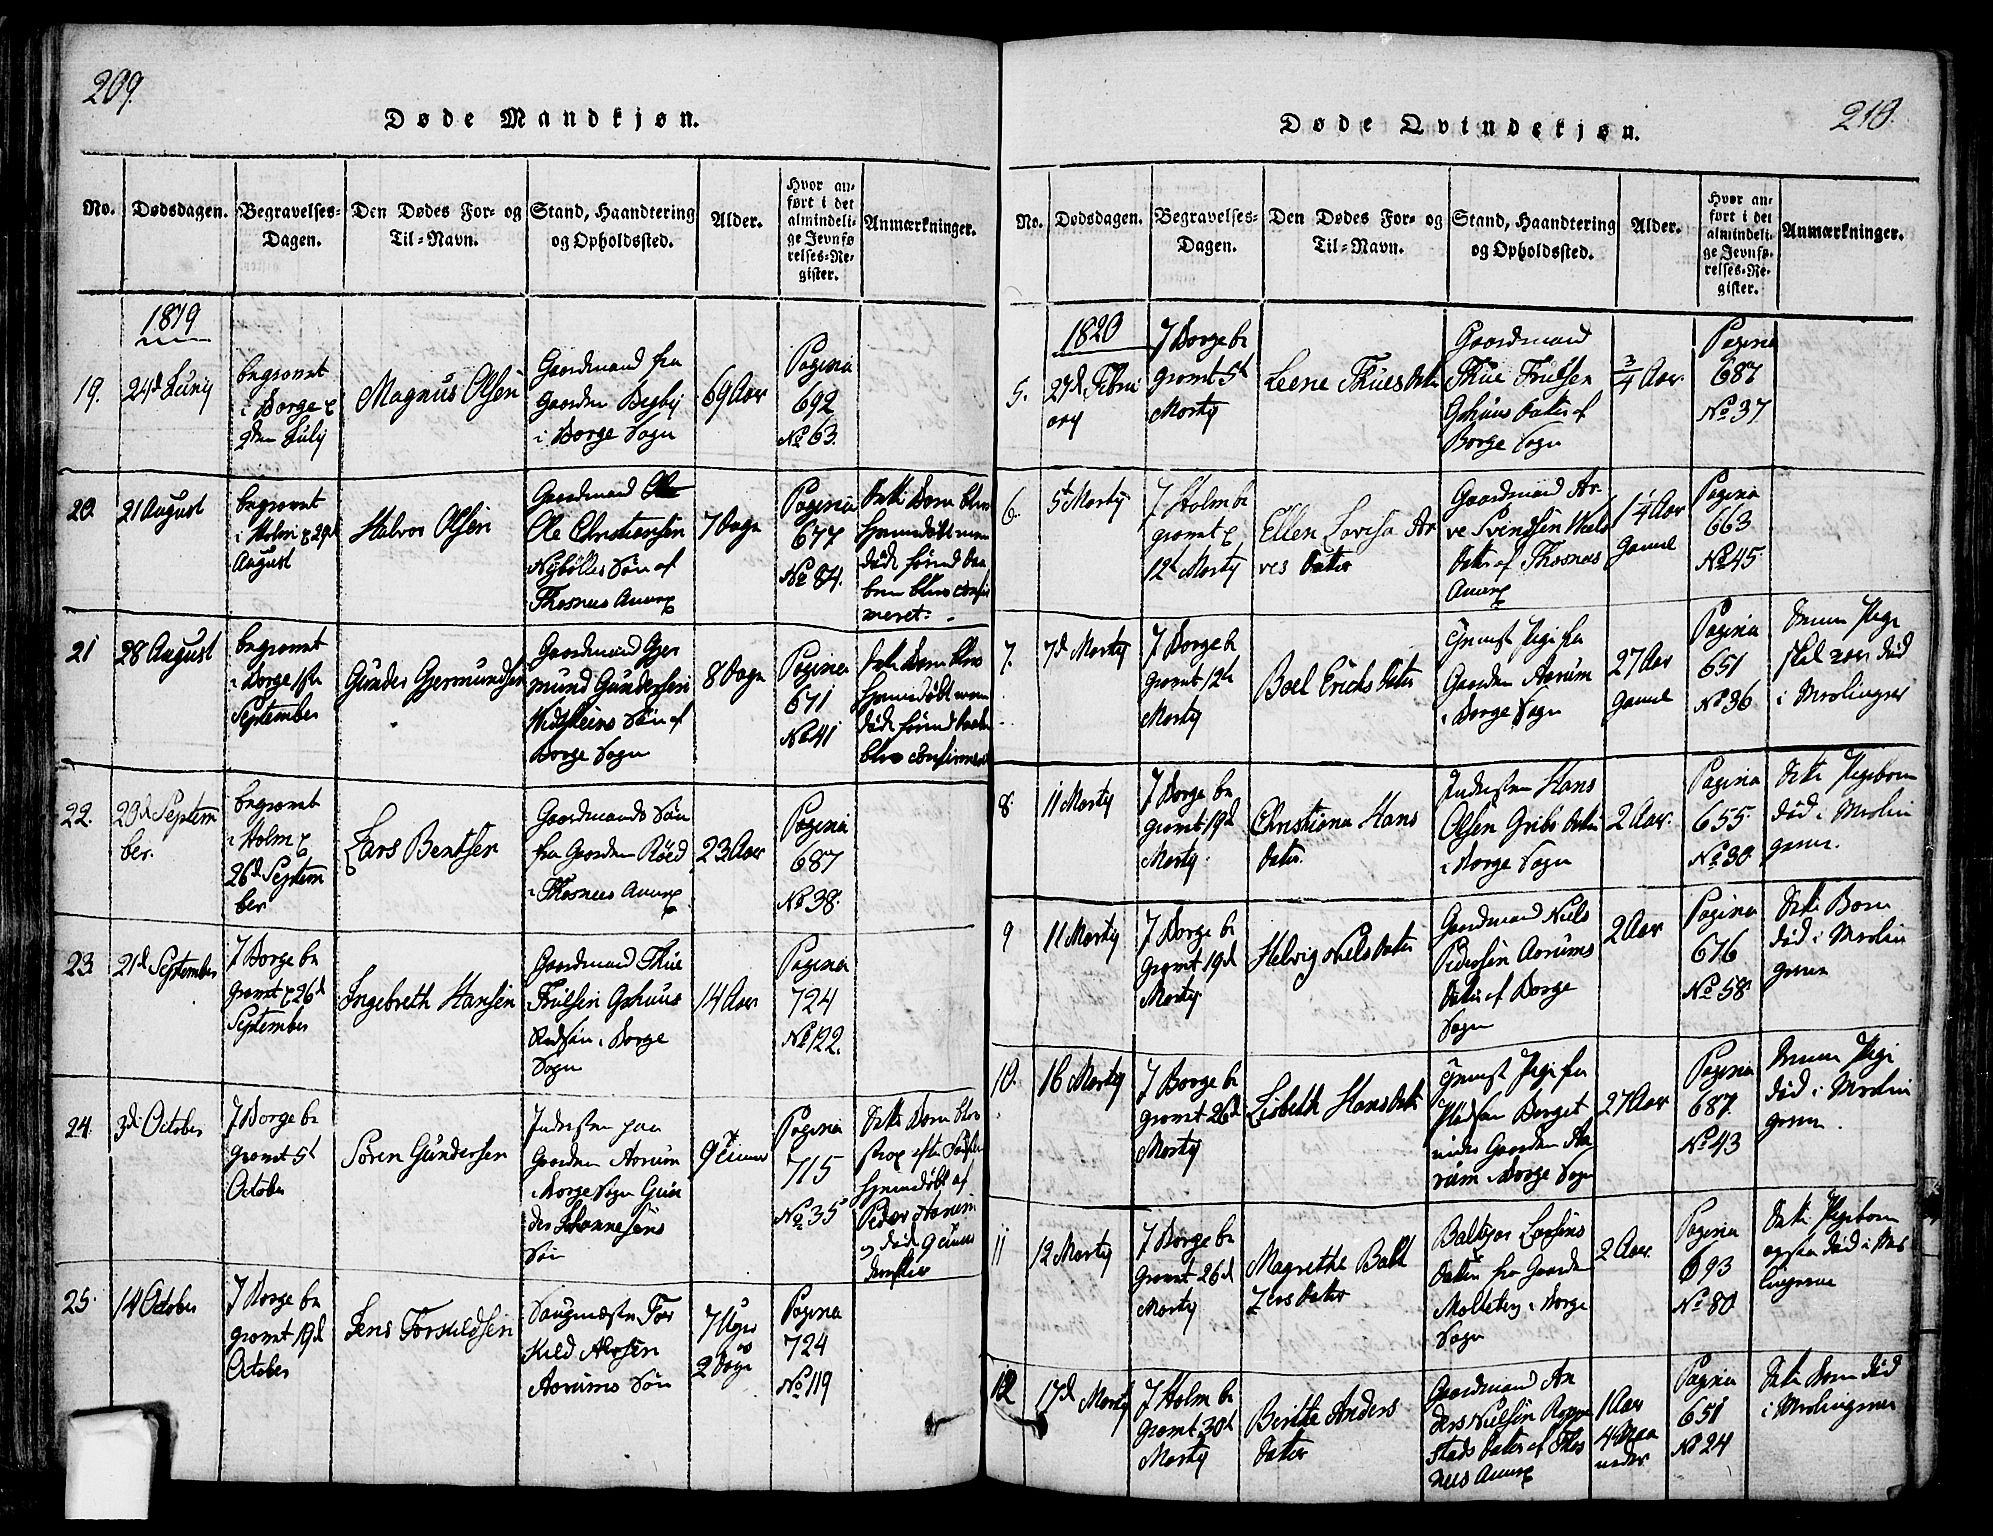 209.
Døde Mandkjøn.
No.
Dødsdagen.
Begravelses-
Dagen.
Den Dødes For- og
Til-Navn.
Stand, Haandtering
og Opholdssted.
Alder.
Hvor an-
ført i det
almindeli-
ge Jevnfø-
relses-Re-
gister.
Anmærkninger.
1819
19.
24d Junij
begravet
i Borge
den Julij
Magnus Olsen
Gaardmand fra
Gaarden Begby
i Borge Sogn
69 Aar
Pagina
692
No 63.
20.
21 August
begravet
i Holm 29d
August
Halvor Olsen
Gaardmand
Ole Christiansen
Nybölles Søn af
Thosnes Annex
7 Dage
Pagina
677
No 84.
Dette Barn blev
hjemmedöbt men
döde förend Daa
ben blev confir
meret.
21
28 August
begravet
i Borge
September
Gunder Gjermundsen
Gaardmand Gjer
mund Gundersen
Søn af
Borge Sogn
8 Dage
Pagina
671
No 41
Dette Barn blev
hjemmedöbt men
döde förend Daaben
blev confirmeret
22.
20d Septem
ber.
begravet
i Holm
26d Septem
ber
Lars Bentsen
Gaardmands Søn
fra Gaarden Röed
i Thosnes Annex
23 Aar
Pagina
687
No 38.
23.
21d September
J Borge be
gravet 26d
September
Ingebreth Hansen
Gaardmand Thue
Frilsen Gahuus
Stedsøn i Borge
Sogn
14 Aar
Pagina
724
No 122.
24.
3d October
J Borge be
gravet 5t
October
Sören Gundersen
Indersten paa
Gaarden Aarum
i Borge Sogn Gun
der Johannesens
Søn
9 Timer
Pagina
715
No 35
Dette Barn blev
strax efter Fødselen
hjemmedöbt af
Peder Aarum
og døde 9 Timer
derefter
25.
14 October
J Borge be
gravet 19d
October
Jens Torkildsen
Saugmester Tor
kild
Aarums Søn
7 Uger
2 Dage
Pagina
724
No 119
210.
Døde Qvindekjøn.
No.
Dødsdagen.
Begravelses-
Dagen.
Den Dødes For- og
Til-Navn.
Stand, Haandtering
og Opholdssted.
Alder.
Hvor an-
ført i det
almindeli-
ge Jevnfø-
relses-Re-
gister.
Anmærkninger.
1820
5.
27d Febru
ary
J Borge be
gravet 5t
Marty
Leene Thues Datter
Gaardmand
Thue Frilsen
Gahuus Datter af
Borge Sogn
3/4 Aar
Pagina
687
No 37
6.
5t Marty
J Holm be
gravet
12t Marty
Ellen Lovisa Ar
ves Datter
Gaardmand Ar
ve Svendsen
Datter af Thosnes
Annex
1 1/4 Aar
Gammel
Pagina
663
No 45
7.
7d Marty
J Borge be
gravet 12te
Marty
Boel Erichs Datter
Tjenest Pige fra
Gaarden Aarum
i Borge Sogn
27 Aar
Gammel
Pagina
651
No 36
Denne Pige
skal være död
i Meslinger
8.
11 Marty
J Borge be
gravet 19d
Marty.
Christiana Hans
Datter.
Indersten Hans
Olsen Gribs Datter
i Borge Sogn
2 Aar.
Pagina
655
No 30
Dette Pigebarn
död i Meslin
gerne.
9
11 Marty
J Borge be
gravet 19d
Marty.
Helvig Niels Datter
Gaardmand Niels
Pedersen Aarums
Datter af Borge
Sogn
2 Aar
Pagina
676
No 58
Dette Barn
död i Meslin
gerne
10.
16 Marty
J Borge be
gravet 26d
Marty
Lisbeth Hans Datter
Tjenest Pige fra
Pladsen Berget
under Gaarden Aa
rum i Borge Sogn
27 Aar
Pagina
687.
No 43
Denne Pige
död i Meslin
gerne.
11
12 Marty
J Borge be
gravet 26d
Marty
Magrethe Balt
zers Datter
Baltzer Larsens
Datter fra Gaarden
i Borge
Sogn
2 Aar.
Pagina
693
No 80
Dette Pigebarn
ogsaa död i Mes
lingerne
12
17d Marty
J Holm be
gravet 30t
Marty
Birthe Anders
Datter
Gaardmand An
ders Nielsen Roppe
stads Datter af Thos
nes Annex
1 Aar
4 Maa
neder
Pagina
651
No 24
Dette Barn död
i Meslingerne